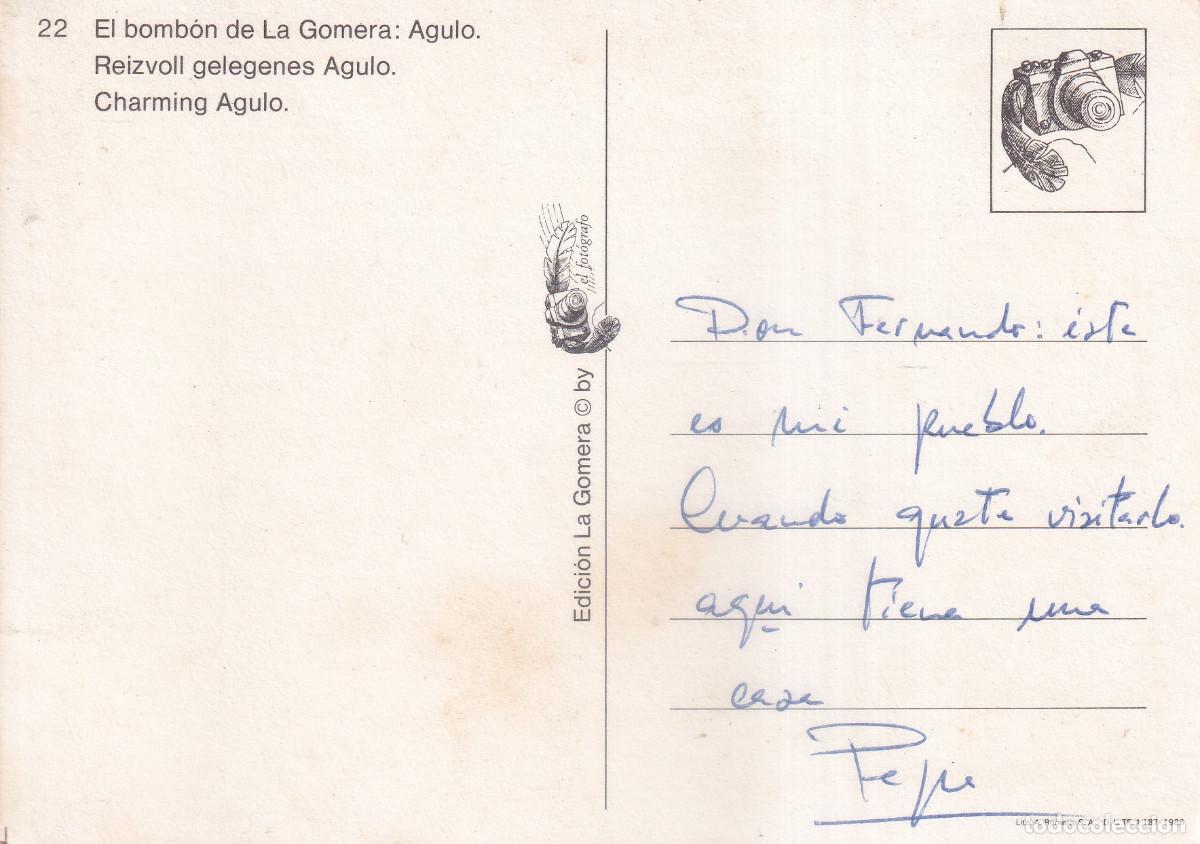 22 El bombón de La Gomera: Agulo.
Reizvoll gelegenes Agulo.
Charming Agulo.
el fotógrafo
Edición La Gomera © by
Don Fernando: éste
es mi pueblo.
Cuando guste visitarlo.
aquí tiene una
casa
Pepe
todocoleccion